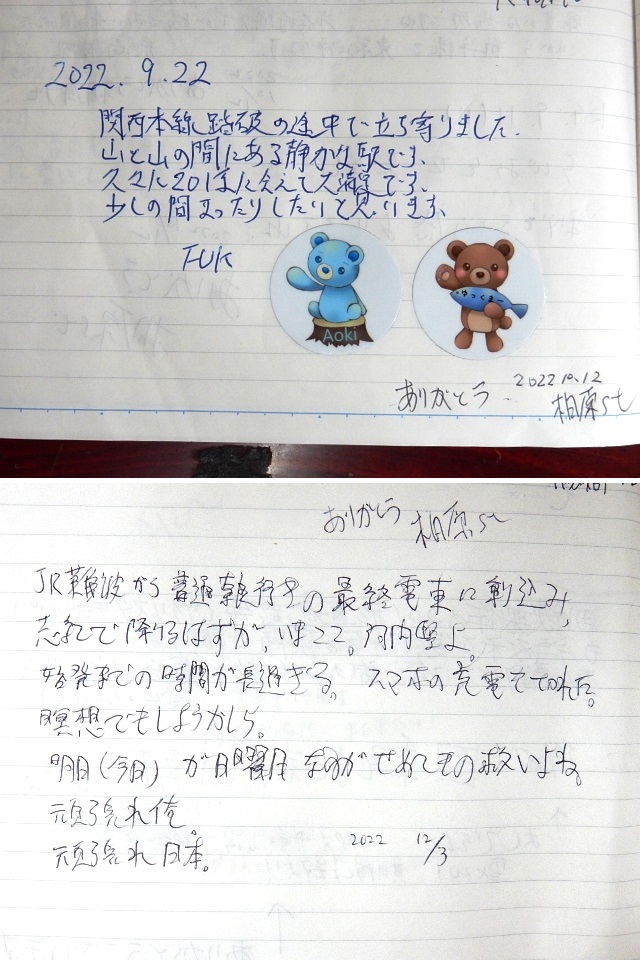 2022.9.22
関西本線踏破の途中で立ち寄りました.
山と山の間にある静かな駅です、
久々に201系に会えて大満足です、
少しの間まったりしたりと思います、
FUK
Aoki
ゆっくまー
ありがとう 2022 10.12
柏原st
ありがとう 柏原st
JR難波から普通 行きの最終電車に乗込み,
志紀で降りるはずが、いまここ。河内堅上。
始発までの時間が長過ぎる。スマホの充電もできれた。
瞑想でもしようかしら。
明日(今日) が日曜日なのがせめてもの救いよね。
頑張れ俺。
頑張れ日本。 2022 12/3